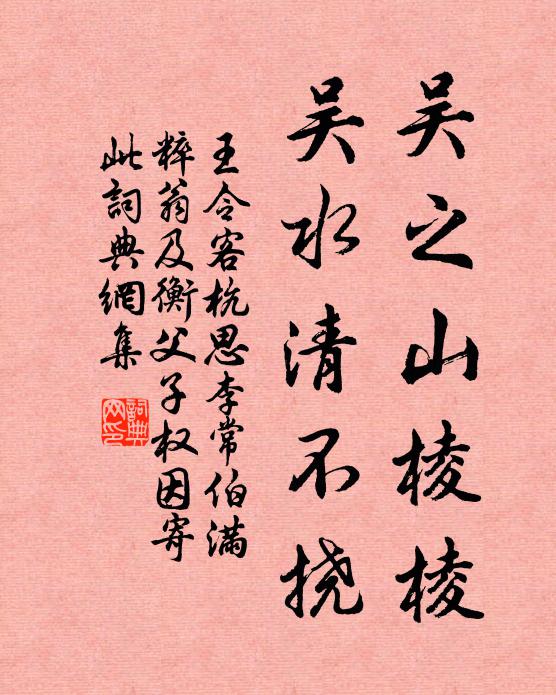 吴之山棱棱
吴水清不挠
王令客杭思李常伯满
粹翁及衡父子权因寄
此詞典網集
詞典
网印